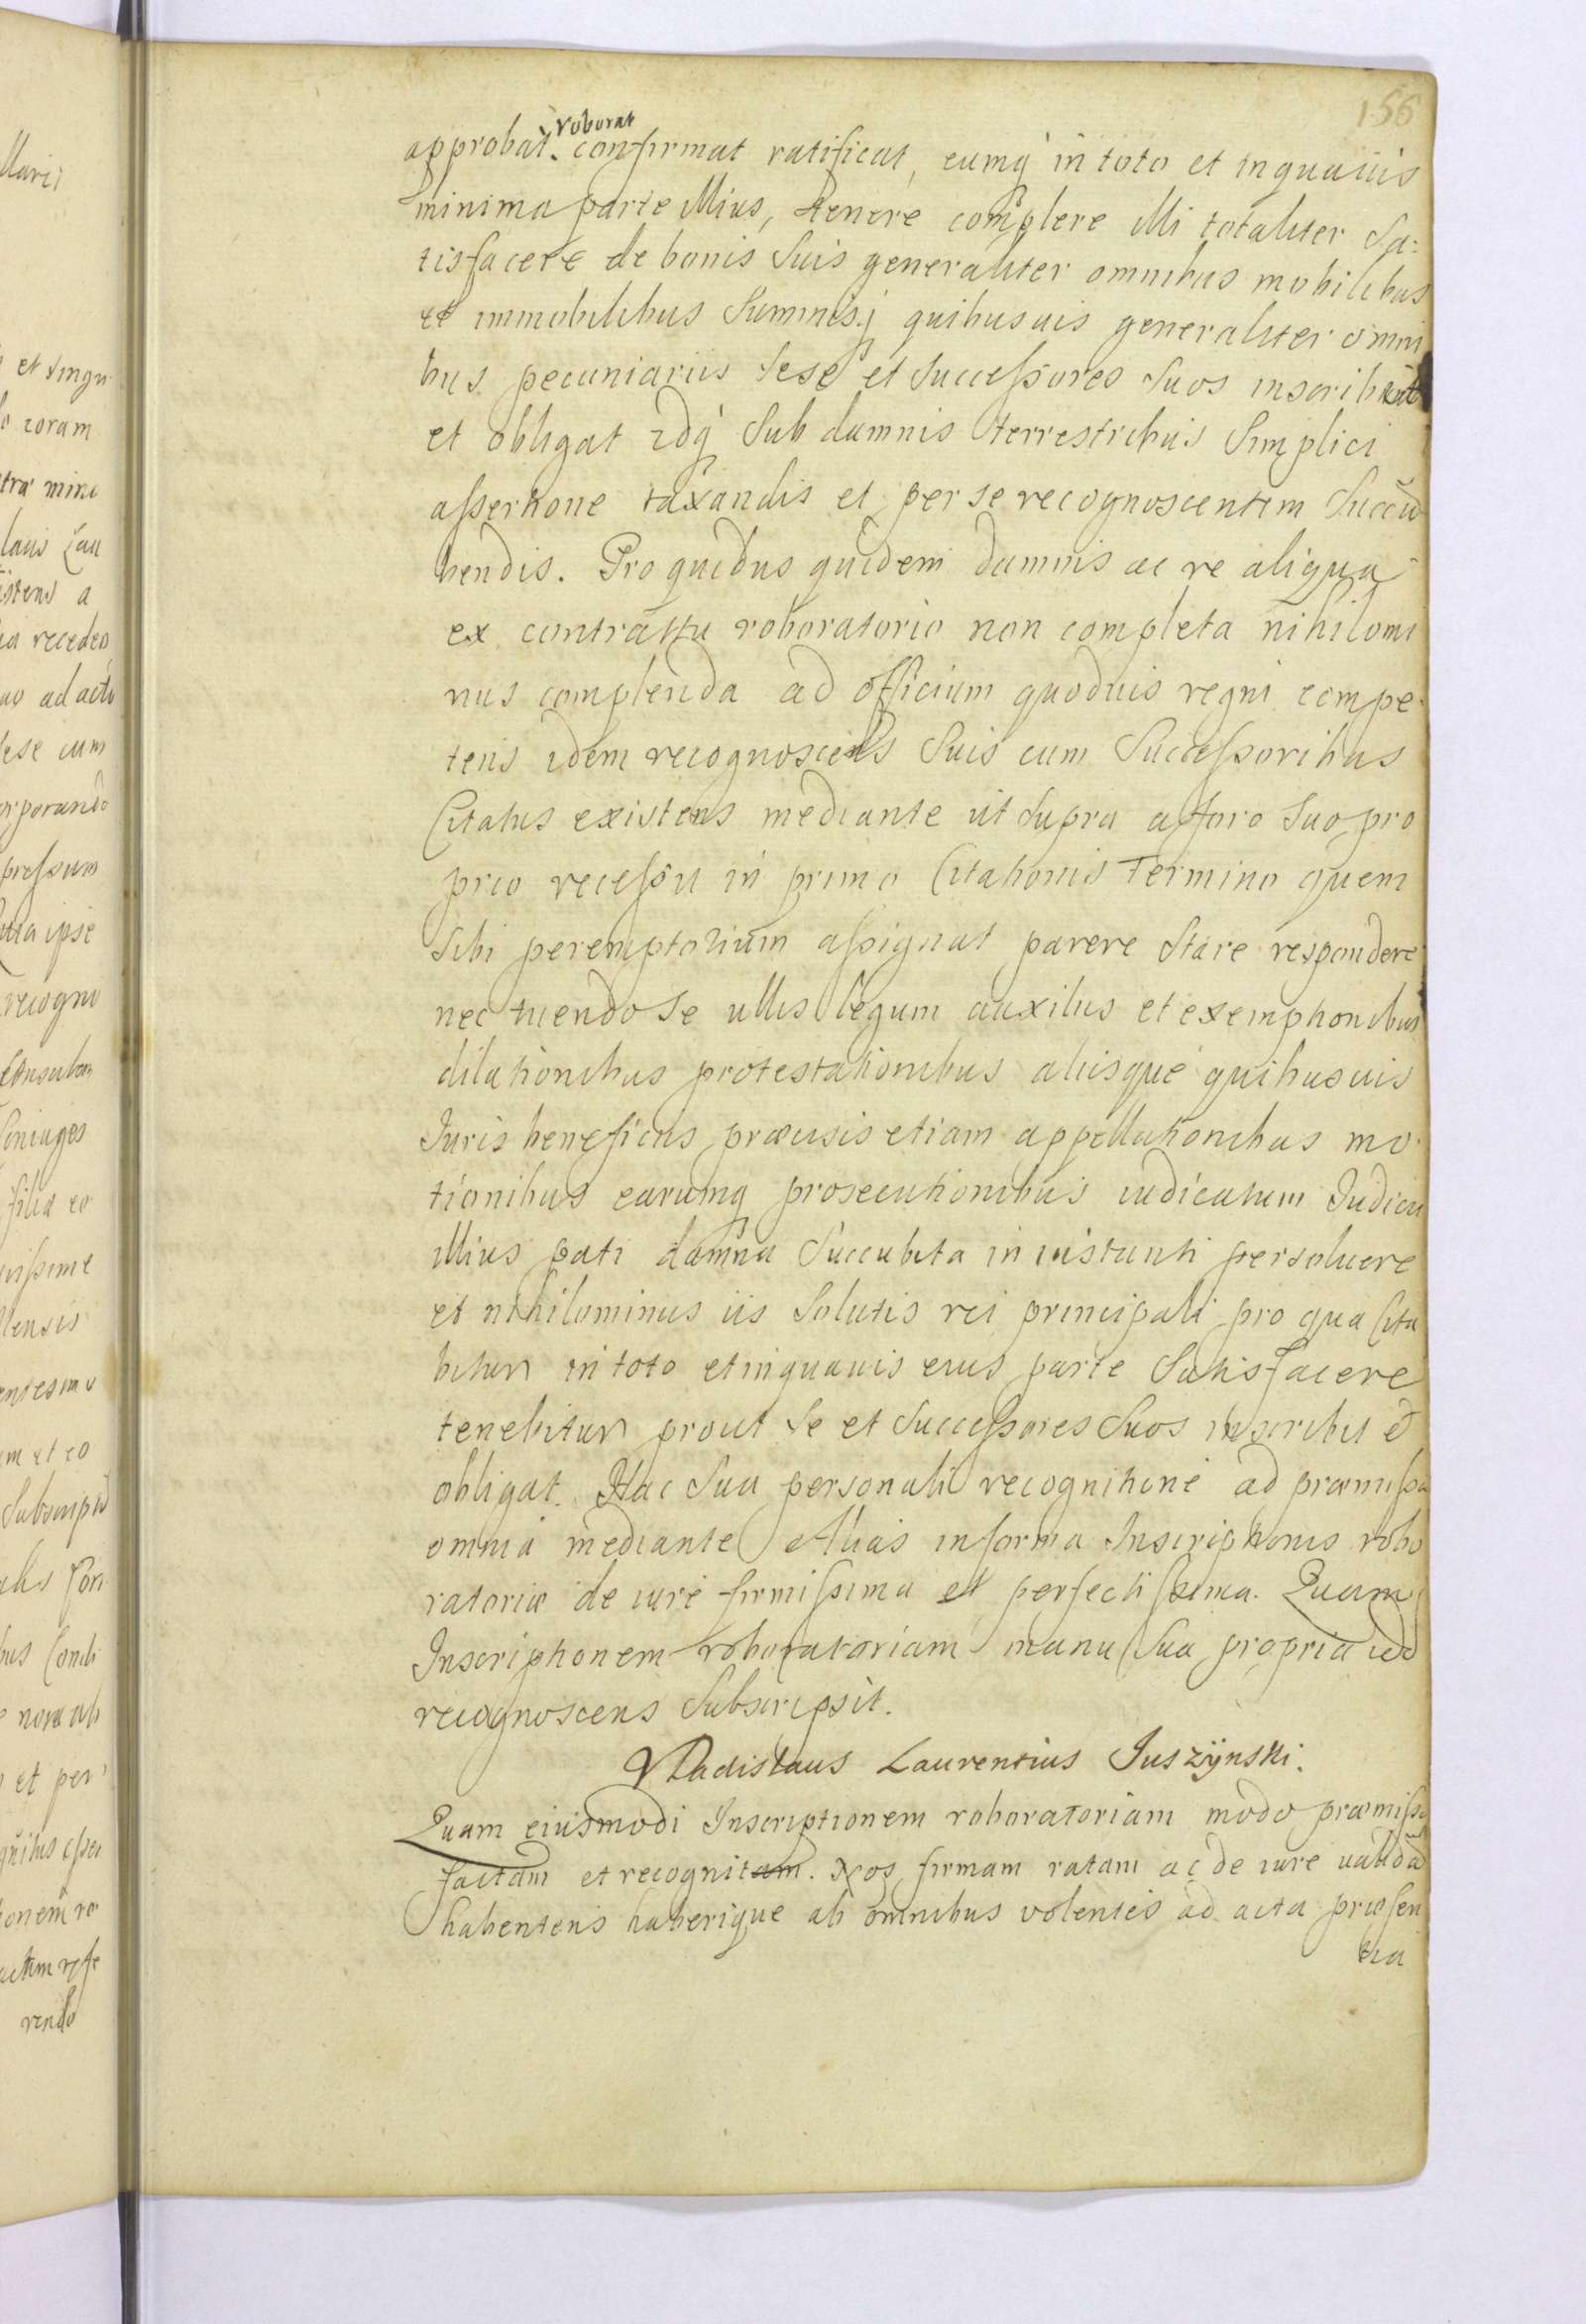 156
approbat. roborat confirmat ratificat, eumq̃ in toto et inquauis
minima parte illius, tenere complere illi totaliter Sa:
tisfacere de bonis Suis generaliter omnibus mobilibus
et immobilibus Summisq̃ quibusuis generaliter omni
bus pecuniariis Sese et Successores Suos inscribit
et obligat idq̃ Sub damnis terrestribus Simplici
assertione taxandis et per se recognoscentem Succũ
bendis. Pro quibus quidem damnis ac re aliqua
ex contractu roboratorio non completa nihilomi
nus complenda ad officium quoduis regni compe
tens idem recognoscens Suis cum Successoribus
Citatus existens mediante ut Supra a foro Suo pro
prio recessu in primo Citationis Termino quem
Sibi peremptorium assignat parere Stare respondere
nec tuendo Se ullis legum auxiliis et exemptionibus
dilationibus protestationibus aliisque quibusuis
Iuris beneficiis præcisis etiam appellationibus mo
tionibus earumq̃ prosecutionibus iudicatum Iudicii
illius pati damna Succubita in instanti persoluere
et nihilominus iis Solutis rei principali pro qua Cita
bitur in toto et inquauis eius parte Satisfacere
tenebitur prout Se et Successores Suos inscribit et
obligat. Hac Sua personali recognitione ad præmissa
omnia mediante Alias in forma Inscriptionis robo
ratoriæ de iure firmissima et perfectissima. Quam
Inscriptionem roboratoriam manu Sua propria id
recognoscens Subscripsit.
Vladislaus Laurentius Iuszÿnski.
Quam eiusmodi Inscriptionem roboratoriam modo præmisso
factam et recognitam. Nos firmam ratam ac de iure ualidã
habentens haberique ab omnibus volentes ad acta præsen
tia